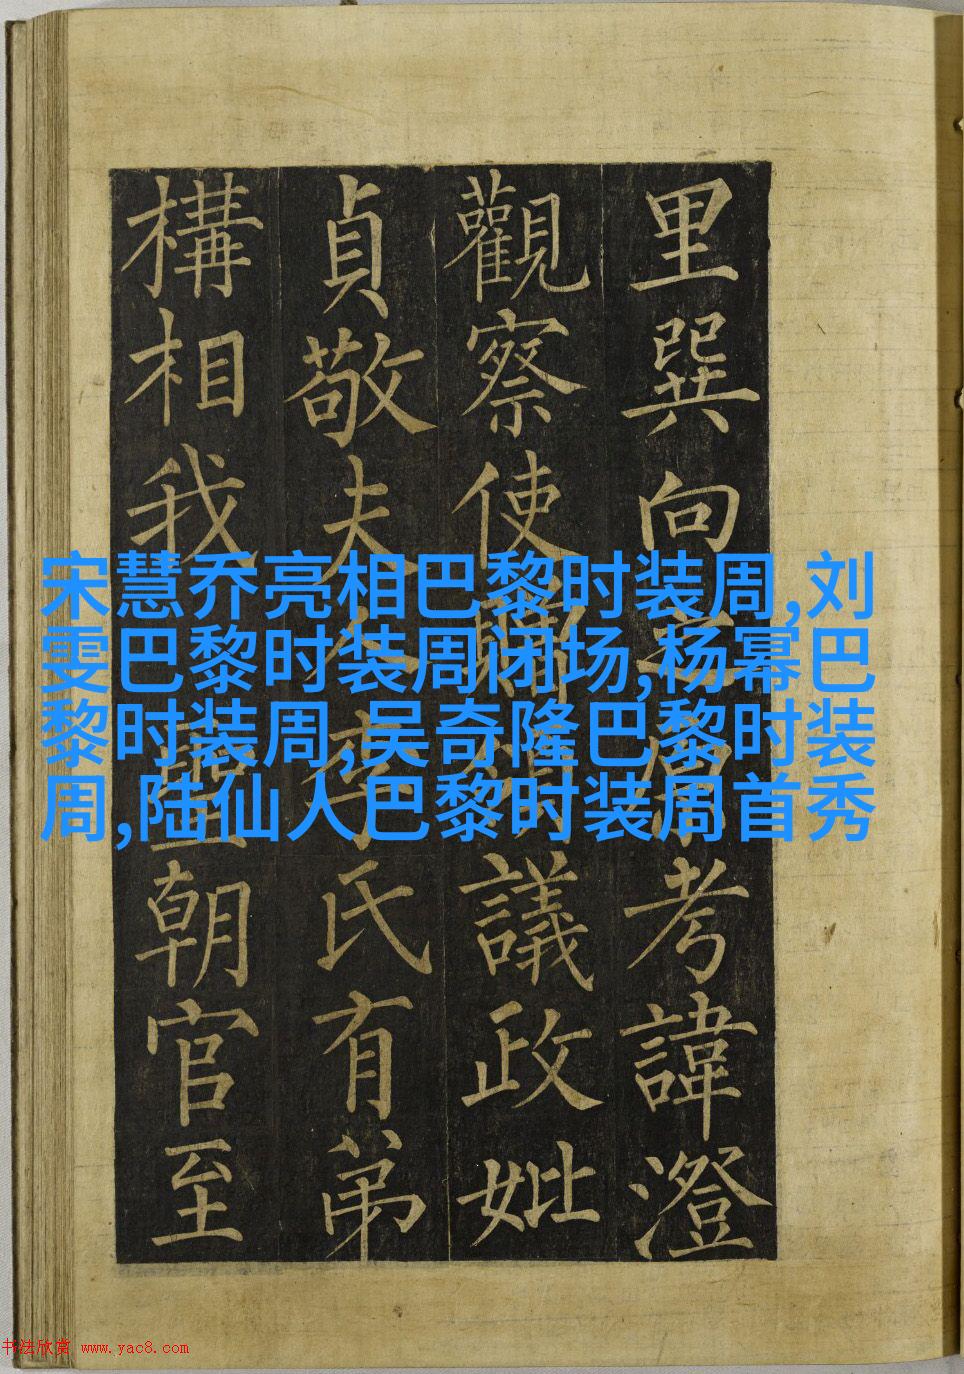 里巽向之原考諱澄
觀察使贈領議政妣
貞敬夫人李氏有弟
構相我聖朝官至
宋慧乔亮相巴黎时装周,刘
雯巴黎时装周闭场,杨幂巴
黎时装周,吴奇隆巴黎时装
周,陆仙人巴黎时装周首秀
书法欣赏 www.yac8.com